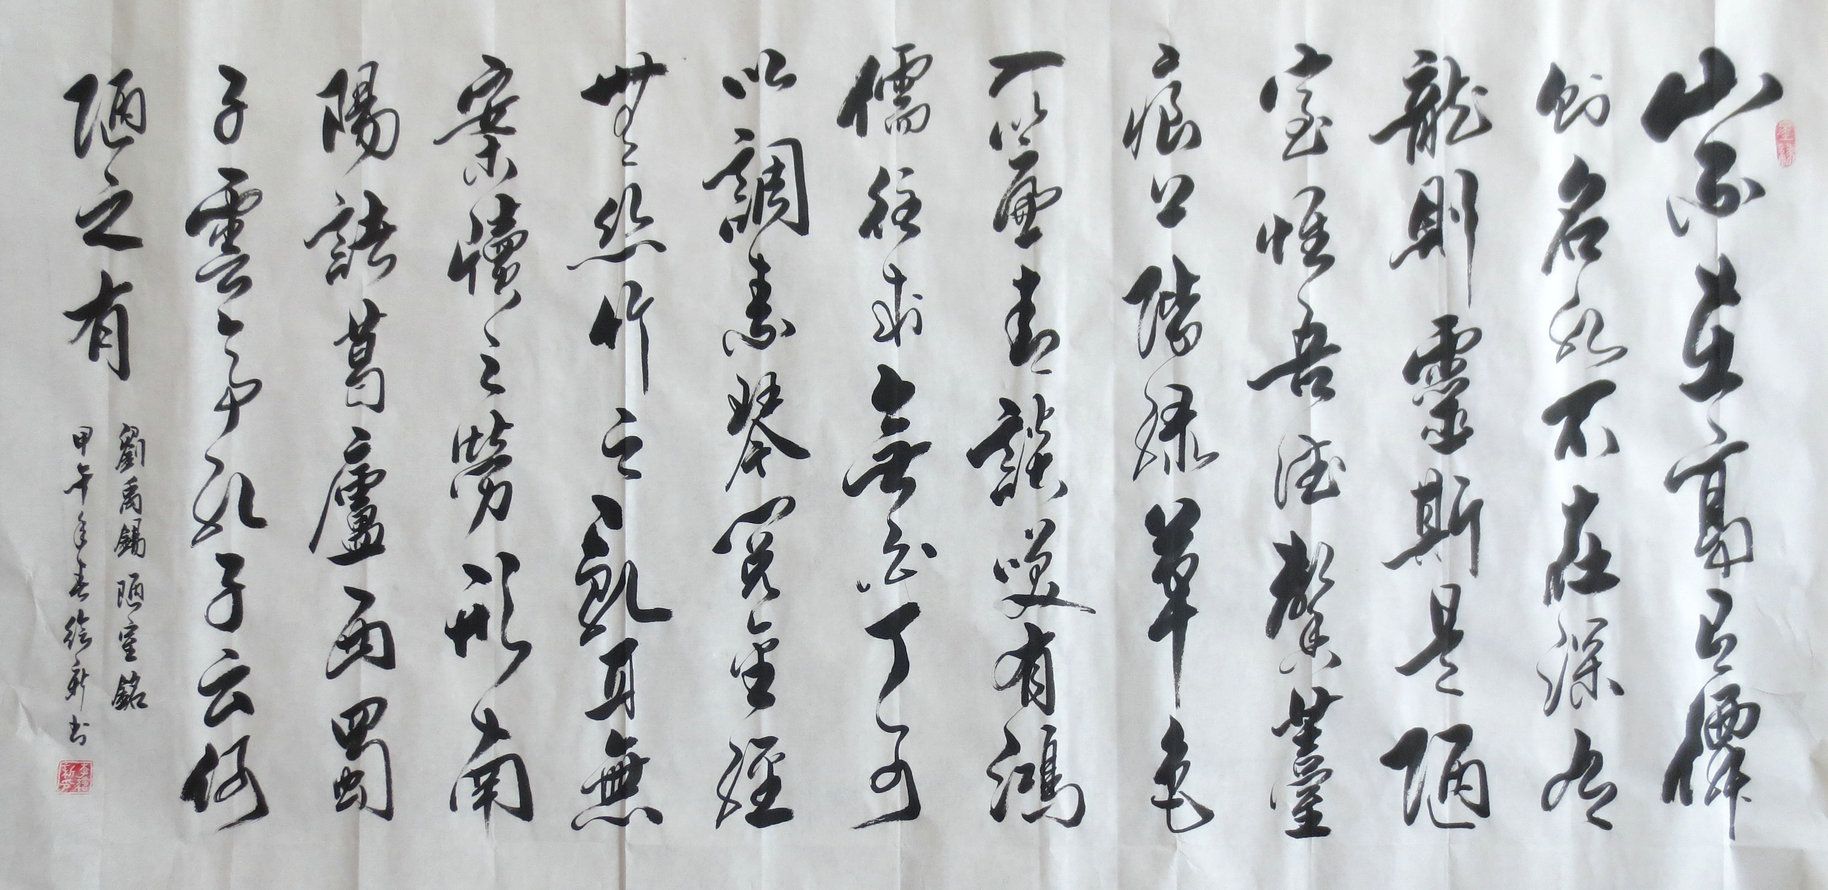 山不在高有僊
則名水不在深有
龍則靈斯是陋
室惟吾德馨薹
痕上階綠草色
入簾青談笑有鴻
儒往來無白丁可
以調素琴閱金經
無絲竹之亂耳無
案牘之勞形南
陽諸葛廬西蜀
子雲亭孔子云何
陋之有
劉禹錫陋室銘
甲午年春徐新書